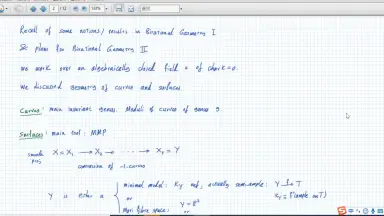 Recall of some notions/results in Birational Geometry I
& plans for Birational Geometry II
we work over an algebraically closed field k of char k = 0.
we discussed geometry of curves and surfaces.
Curves: main invariant genus. Moduli of curves of genus g.
Surfaces: main tool: MMP
smooth X = X₁ → X₂ → ⋯ → Xᵣ = Y
proj
contraction of -1-curves
Y is either a { minimal model: K_Y nef, actually semi-ample: Y → T
or
Mori fibre space: Y = P²
or